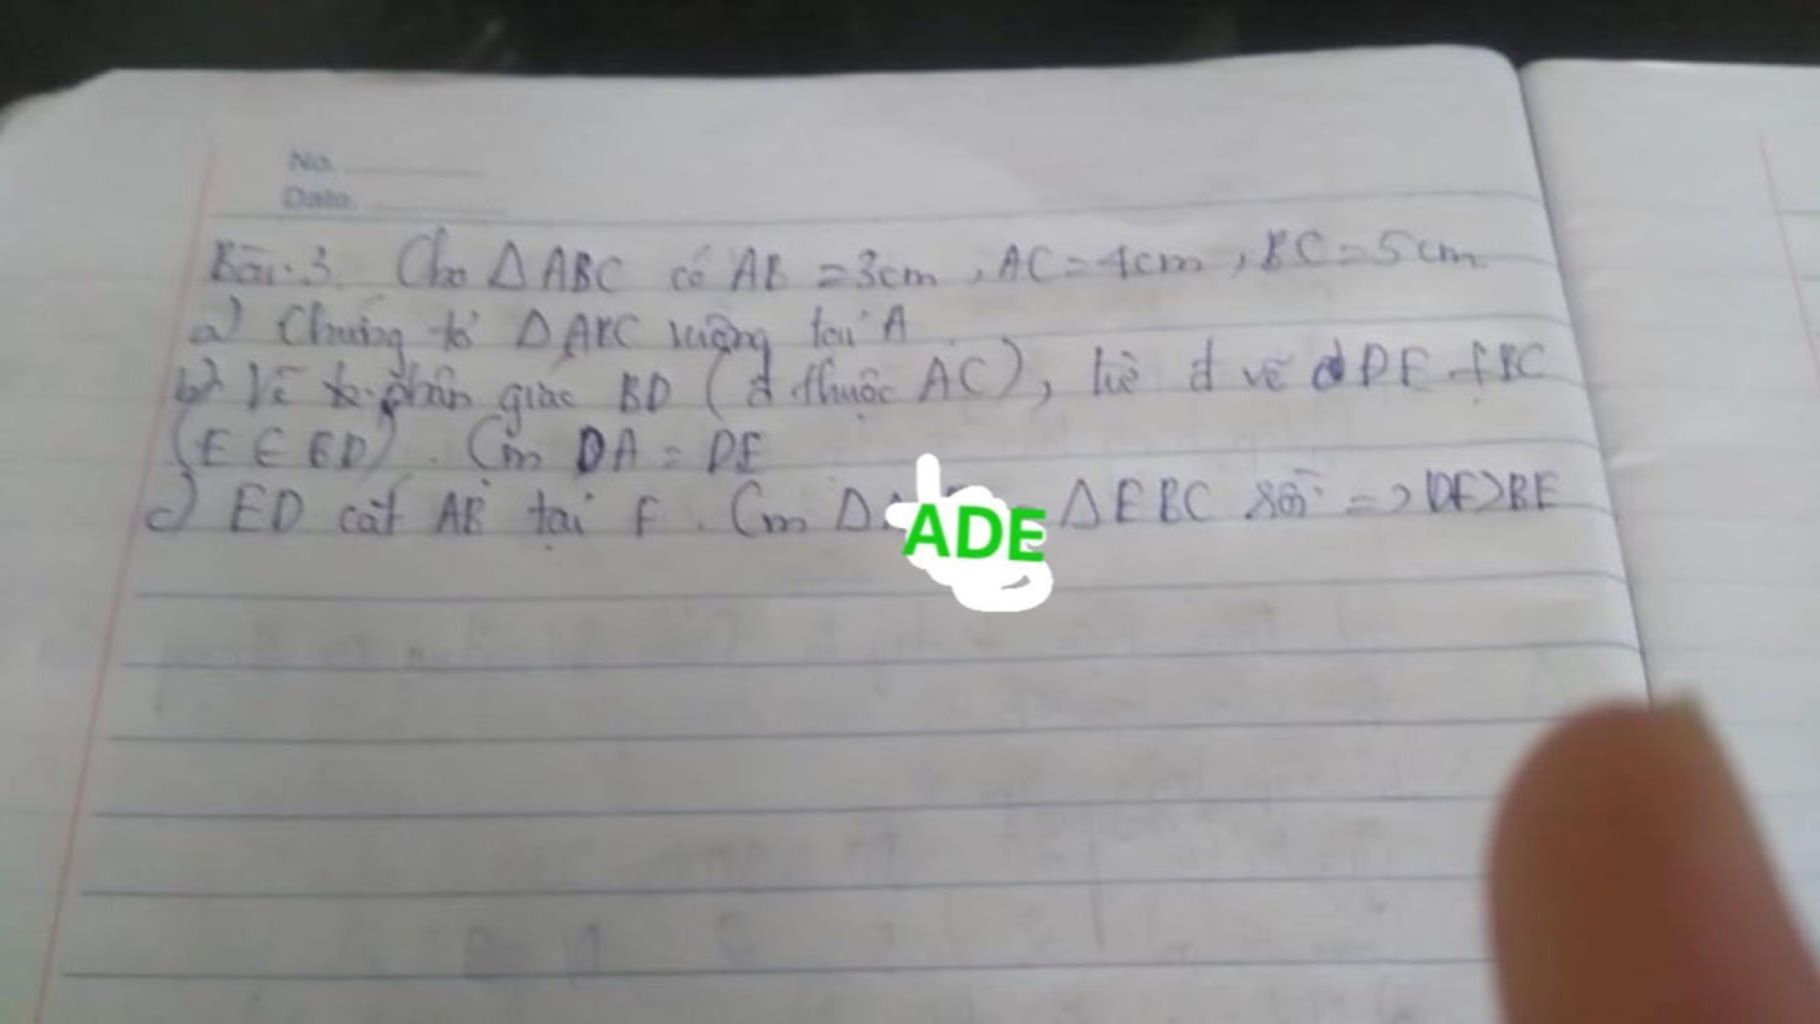 No.
Date.
Bài 3. Cho ΔABC có AB = 3cm, AC = 4cm, BC = 5cm
a) Chứng tỏ ΔABC vuông tại A
b) Vẽ phân giác BD (d thuộc AC), từ d vẽ DE ⊥ BC
(E ∈ BD). Cm DA = DE
c) ED cắt AB tại F. Cm Δ ADE ΔEBC rồi => DF > BE